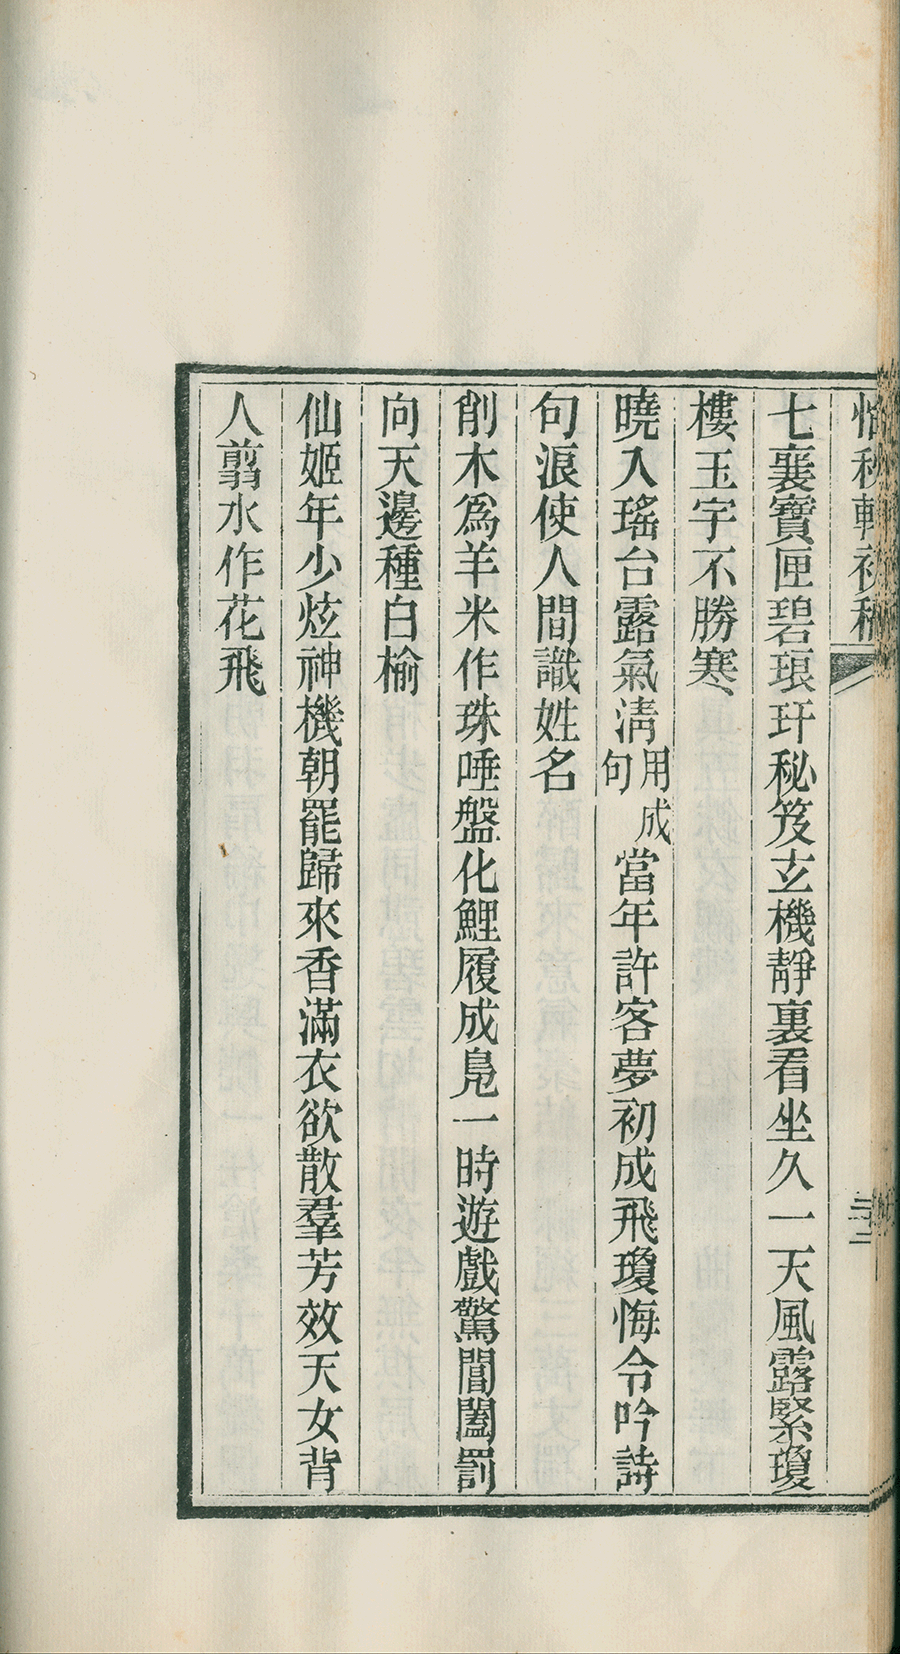 怡秋軒初稿
七襄寶匣碧琅玕秘笈玄機靜裏看坐久一天風露緊瓊
樓玉宇不勝寒
曉入瑤台露氣淸用成句當年許客夢初成飛瓊悔令吟詩
句浪使人間識姓名
削木爲羊米作珠唾盤化鯉履成鳧一時遊戲驚閶闔罰
向天邊種白榆
仙姬年少炫神機朝罷歸來香滿衣欲散羣芳效天女背
人翦水作花飛